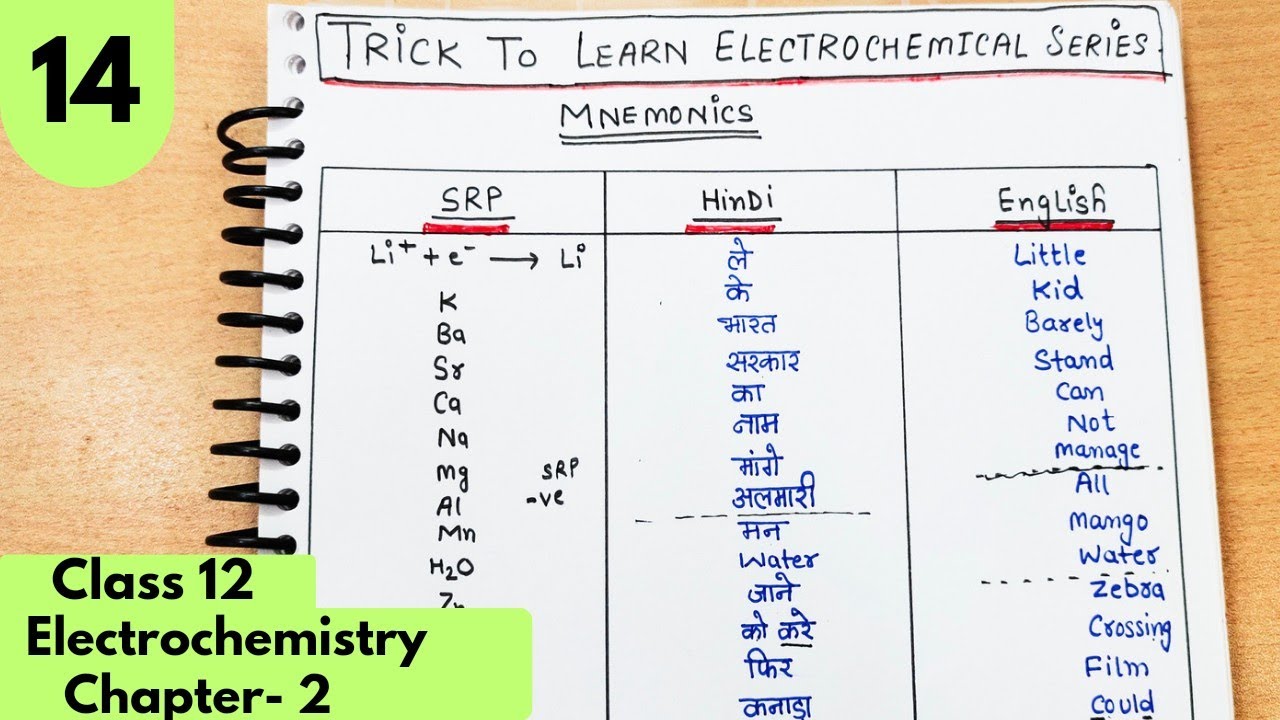 14
TRICK TO LEARN ELECTROCHEMICAL SERIES.
MNEMONICS
SRP HinDi English
Li⁺ + e⁻ → Li ले Little
K के Kid
Ba भारत Barely
Sr सरकार Stand
Ca का Can
Na नाम Not
Mg मांगे manage
SRP
-ve
Al अलमारी All
Mn मन Mango
H₂O Water Water
Zn जाने Zebra
को करे Crossing
फिर Film
कनाडा Could
Class 12
Electrochemistry
Chapter- 2